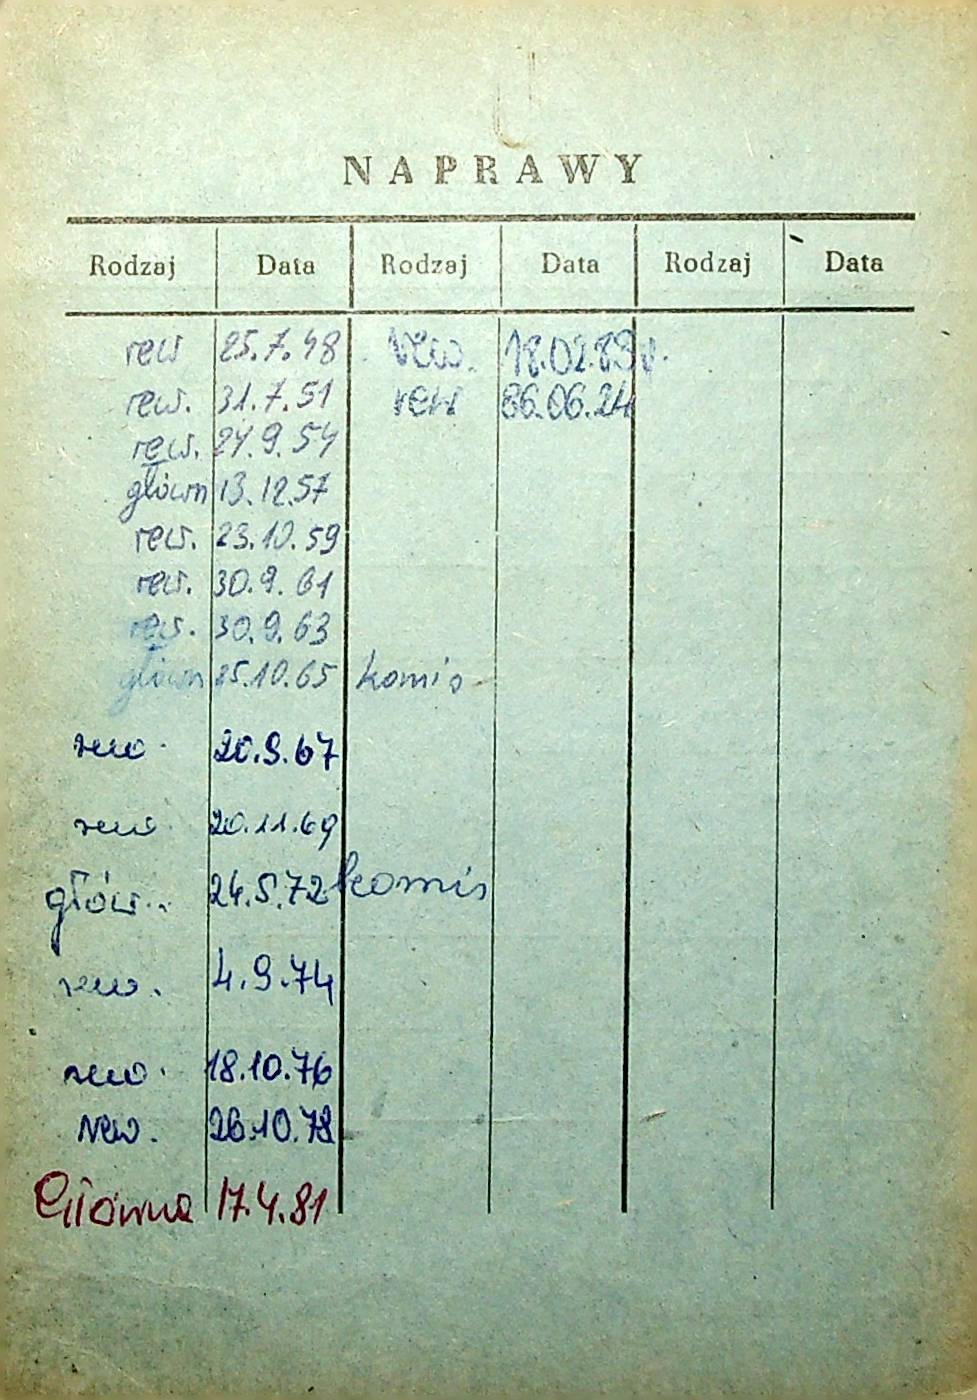 NAPRAWY
Rodzaj Data Rodzaj Data Rodzaj Data
rew 25.7.48 rew. 18.02.83r.
rew. 31.7.51 rew 86.06.24
rew. 24.9.54
główn 13.12.57
rew. 23.10.59
rew. 30.9.61
rew. 30.9.63
główn 25.10.65 komis
rew. 20.9.67
rew. 20.11.69
głów.. 24.5.72 komis
rew. 4.9.74
rew. 18.10.76
rew. 26.10.78
Główna 17.4.81